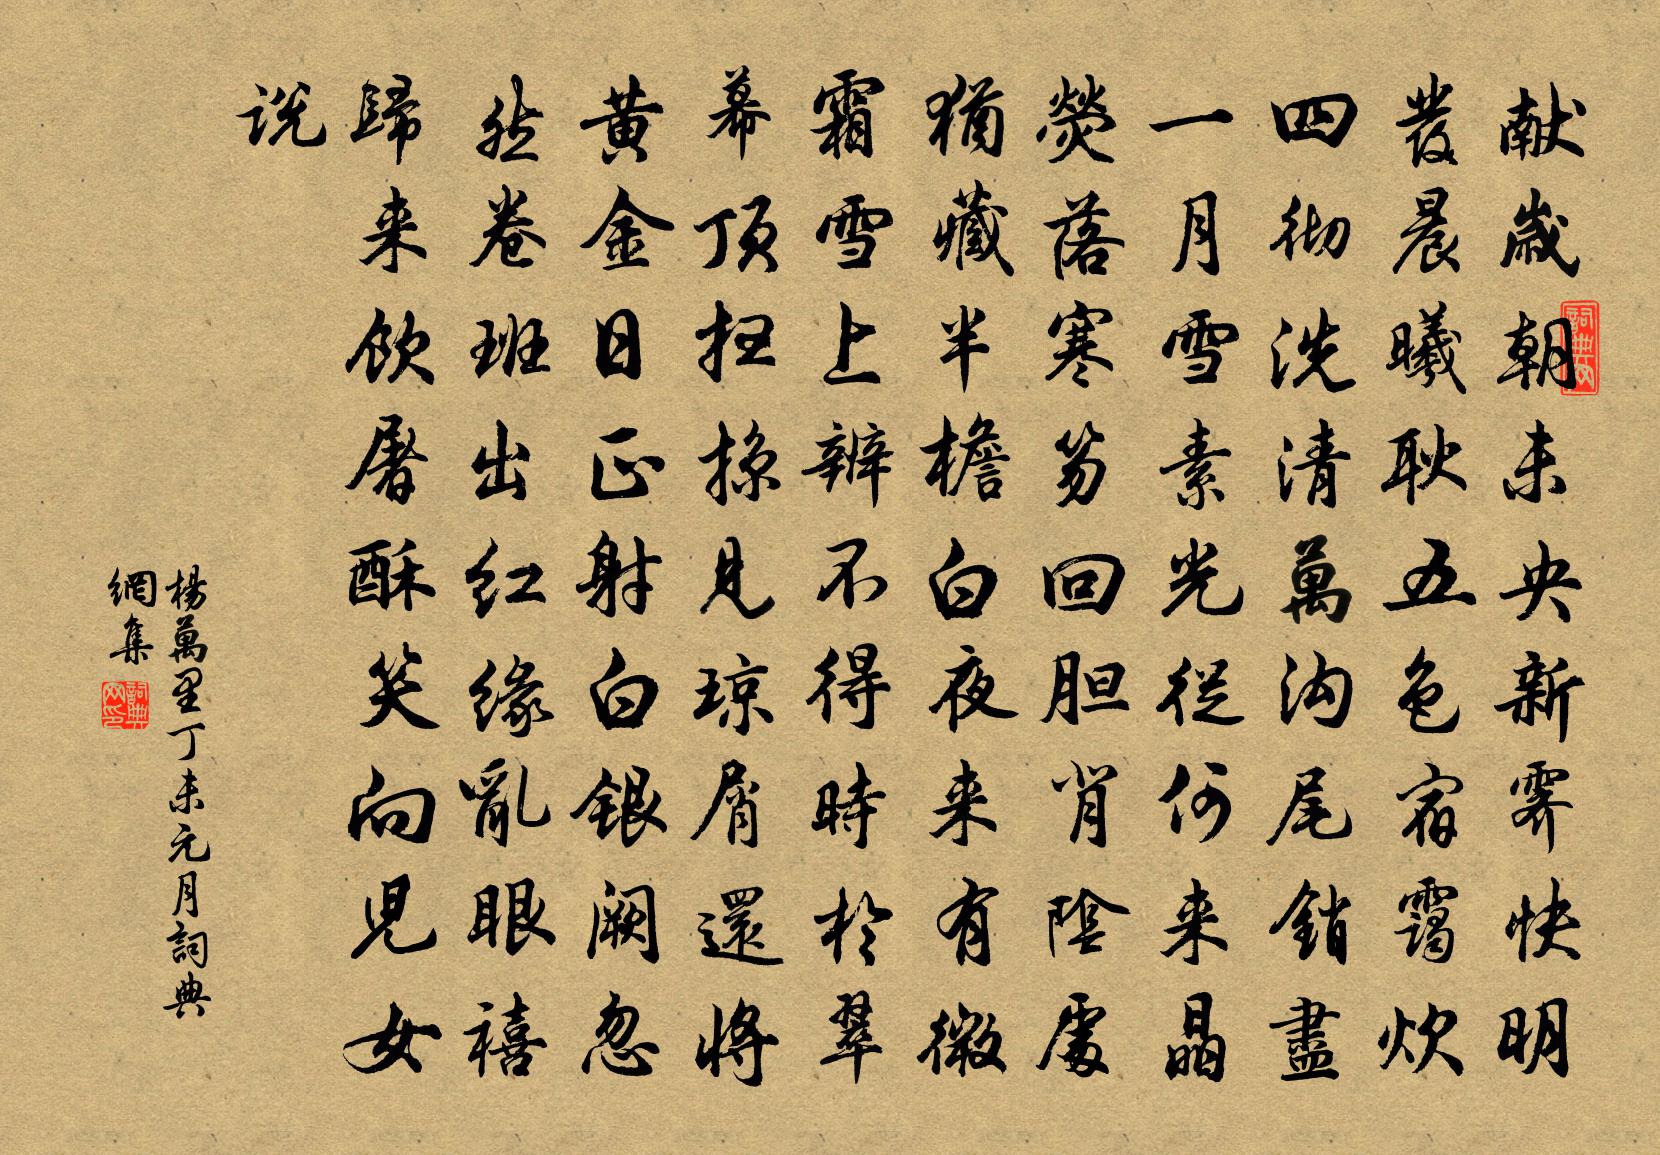 献歳朝未央新霽快明
發晨曦耿五色宿靄炊
四彻洗清萬沟尾銷盡
一月雪素光從何来晶
熒落寒芴回胆肖陰處
猶藏半檐白夜来有微
霜雪上辨不得時於翠
幕頂扫掠見琼屑還將
黄金日正射白銀阙忽
然卷班出红缘亂眼禧
歸来飲屠酥笑向児女
说
楊萬里丁未元月詞典
網集